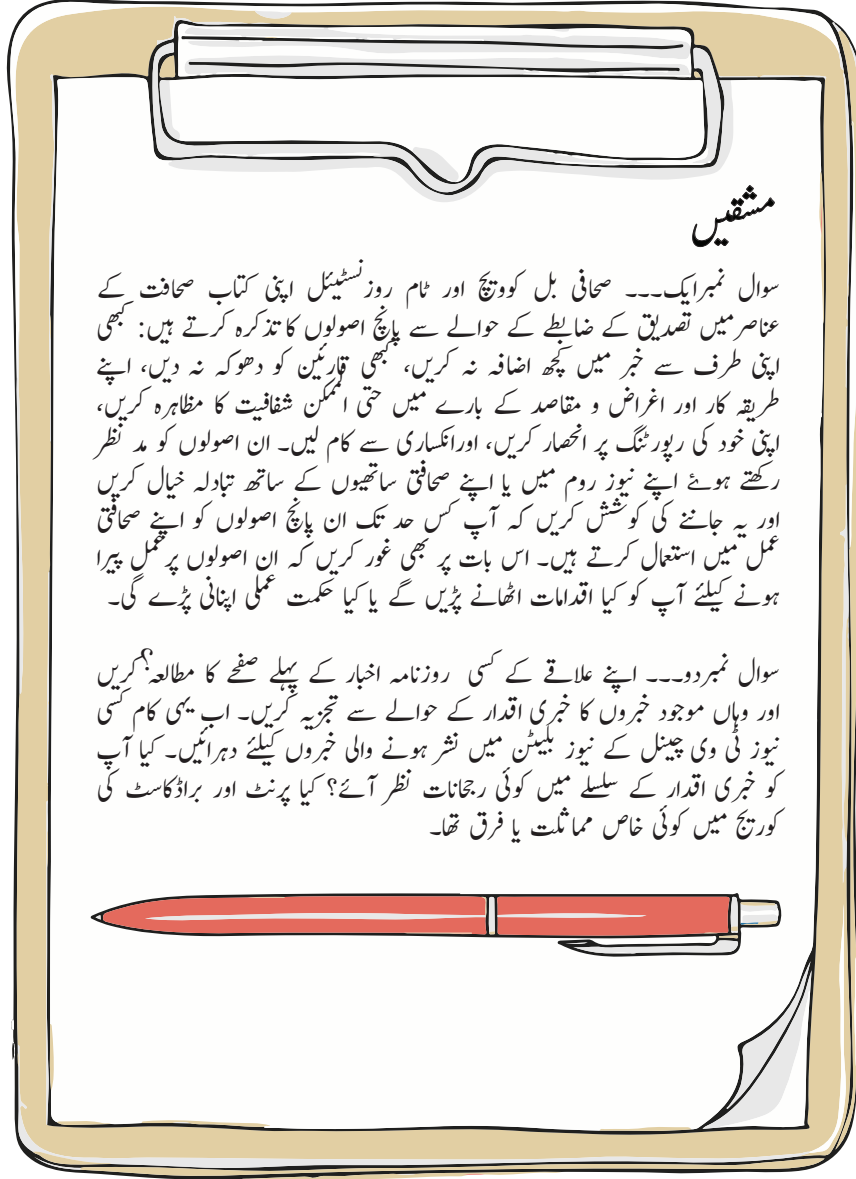 مشقیں
سوال نمبرایک۔۔۔ صحافی بل کوویچ اور ٹام روزنسٹیئل اپنی کتاب صحافت کے
عناصرمیں تصدیق کے ضابطے کے حوالے سے پانچ اصولوں کا تذکرہ کرتے ہیں: کبھی
اپنی طرف سے خبر میں کچھ اضافہ نہ کریں، کبھی قارئین کو دھوکہ نہ دیں، اپنے
طریقہ کار اور اغراض و مقاصد کے بارے میں حتی الممکن شفافیت کا مظاہرہ کریں،
اپنی خود کی رپورٹنگ پر انحصار کریں، اورانکساری سے کام لیں۔ ان اصولوں کو مد نظر
رکھتے ہوئے اپنے نیوز روم میں یا اپنے صحافتی ساتھیوں کے ساتھ تبادلہ خیال کریں
اور یہ جاننے کی کوشش کریں کہ آپ کس حد تک ان پانچ اصولوں کو اپنے صحافتی
عمل میں استعمال کرتے ہیں۔ اس بات پر بھی غور کریں کہ ان اصولوں پرعمل پیرا
ہونے کیلئے آپ کو کیا اقدامات اٹھانے پڑیں گے یا کیا حکمت عملی اپنانی پڑے گی۔
سوال نمبردو۔۔۔ اپنے علاقے کے کسی روزنامہ اخبار کے پہلے صفحے کا مطالعہ؟کریں
اور وہاں موجود خبروں کا خبری اقدار کے حوالے سے تجزیہ کریں۔ اب یہی کام کسی
نیوز ٹی وی چینل کے نیوز بلیٹن میں نشر ہونے والی خبروں کیلئے دہرائیں۔ کیا آپ
کو خبری اقدار کے سلسلے میں کوئی رجحانات نظر آئے؟ کیا پرنٹ اور براڈکاسٹ کی
کوریج میں کوئی خاص مماثلت یا فرق تھا۔